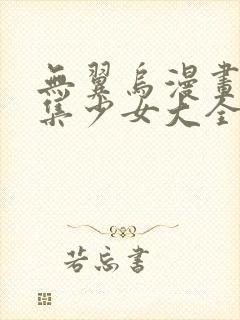 無翼烏漫畫
集少女大全
若忘書